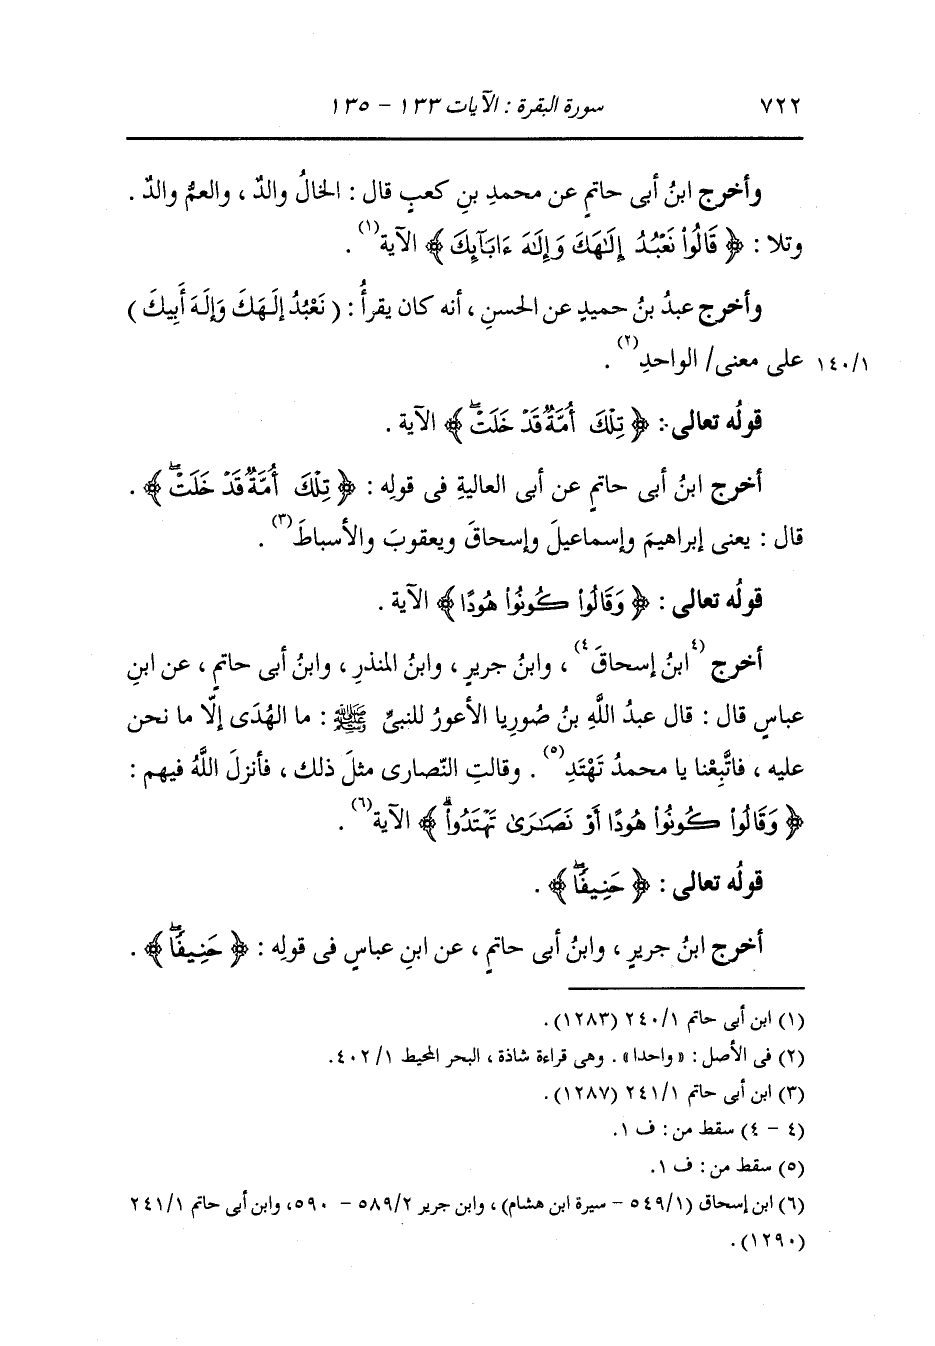 ٧٢٢ سورة البقرة : الآيات ١٣٣ - ١٣٥
وأخرج ابنُ أبى حاتمٍ عن محمدِ بنِ كعبٍ قال : الخالُ والدٌ ، والعمُّ والدٌ .
وتلا : ﴿ قَالُوا۟ نَعْبُدُ إِلَٰهَكَ وَإِلَٰهَ ءَابَآئِكَ ﴾ الآية(١) .
وأخرج عبدُ بنُ حميدٍ عن الحسنِ ، أنه كان يقرأُ : ( نَعْبُدُ إلَهَكَ وَإِلَهَ أَبِيكَ )
١٤٠/١ على معنى/ الواحدِ(٢) .
قولُه تعالى : ﴿ تِلْكَ أُمَّةٌ قَدْ خَلَتْ ۖ ﴾ الآية .
أخرج ابنُ أبى حاتمٍ عن أبى العاليةِ فى قولِه : ﴿ تِلْكَ أُمَّةٌ قَدْ خَلَتْ ۖ ﴾ .
قال : يعنى إبراهيمَ وإسماعيلَ وإسحاقَ ويعقوبَ والأسباطَ(٣) .
قولُه تعالى : ﴿ وَقَالُوا۟ كُونُوا۟ هُودًا ﴾ الآية .
أخرج (٤ابنُ إسحاقَ٤) ، وابنُ جريرٍ ، وابنُ المنذرِ ، وابنُ أبى حاتمٍ ، عن ابنِ
عباسٍ قال : قال عبدُ اللَّهِ بنُ صُورِيا الأعورُ للنبىِّ ﷺ : ما الهُدَى إلَّا ما نحن
عليه ، فاتَّبِعْنا يا محمدُ تَهْتَدِ(٥) . وقالتِ النّصارى مثلَ ذلك ، فأنزلَ اللَّهُ فيهم :
﴿ وَقَالُوا۟ كُونُوا۟ هُودًا أَوْ نَصَٰرَىٰ تَهْتَدُوا۟ ۗ ﴾ الآية(٦) .
قولُه تعالى : ﴿ حَنِيفًا ۖ ﴾ .
أخرج ابنُ جريرٍ ، وابنُ أبى حاتمٍ ، عن ابنِ عباسٍ فى قولِه : ﴿ حَنِيفًا ۖ ﴾ .
(١) ابن أبى حاتم ٢٤٠/١ (١٢٨٣) .
(٢) فى الأصل : «واحدا» . وهى قراءة شاذة ، البحر المحيط ٤٠٢/١ .
(٣) ابن أبى حاتم ٢٤١/١ (١٢٨٧) .
(٤ - ٤) سقط من : ف ١ .
(٥) سقط من : ف ١ .
(٦) ابن إسحاق (٥٤٩/١ - سيرة ابن هشام) ، وابن جرير ٥٨٩/٢ - ٥٩٠ ، وابن أبى حاتم ٢٤١/١
(١٢٩٠) .